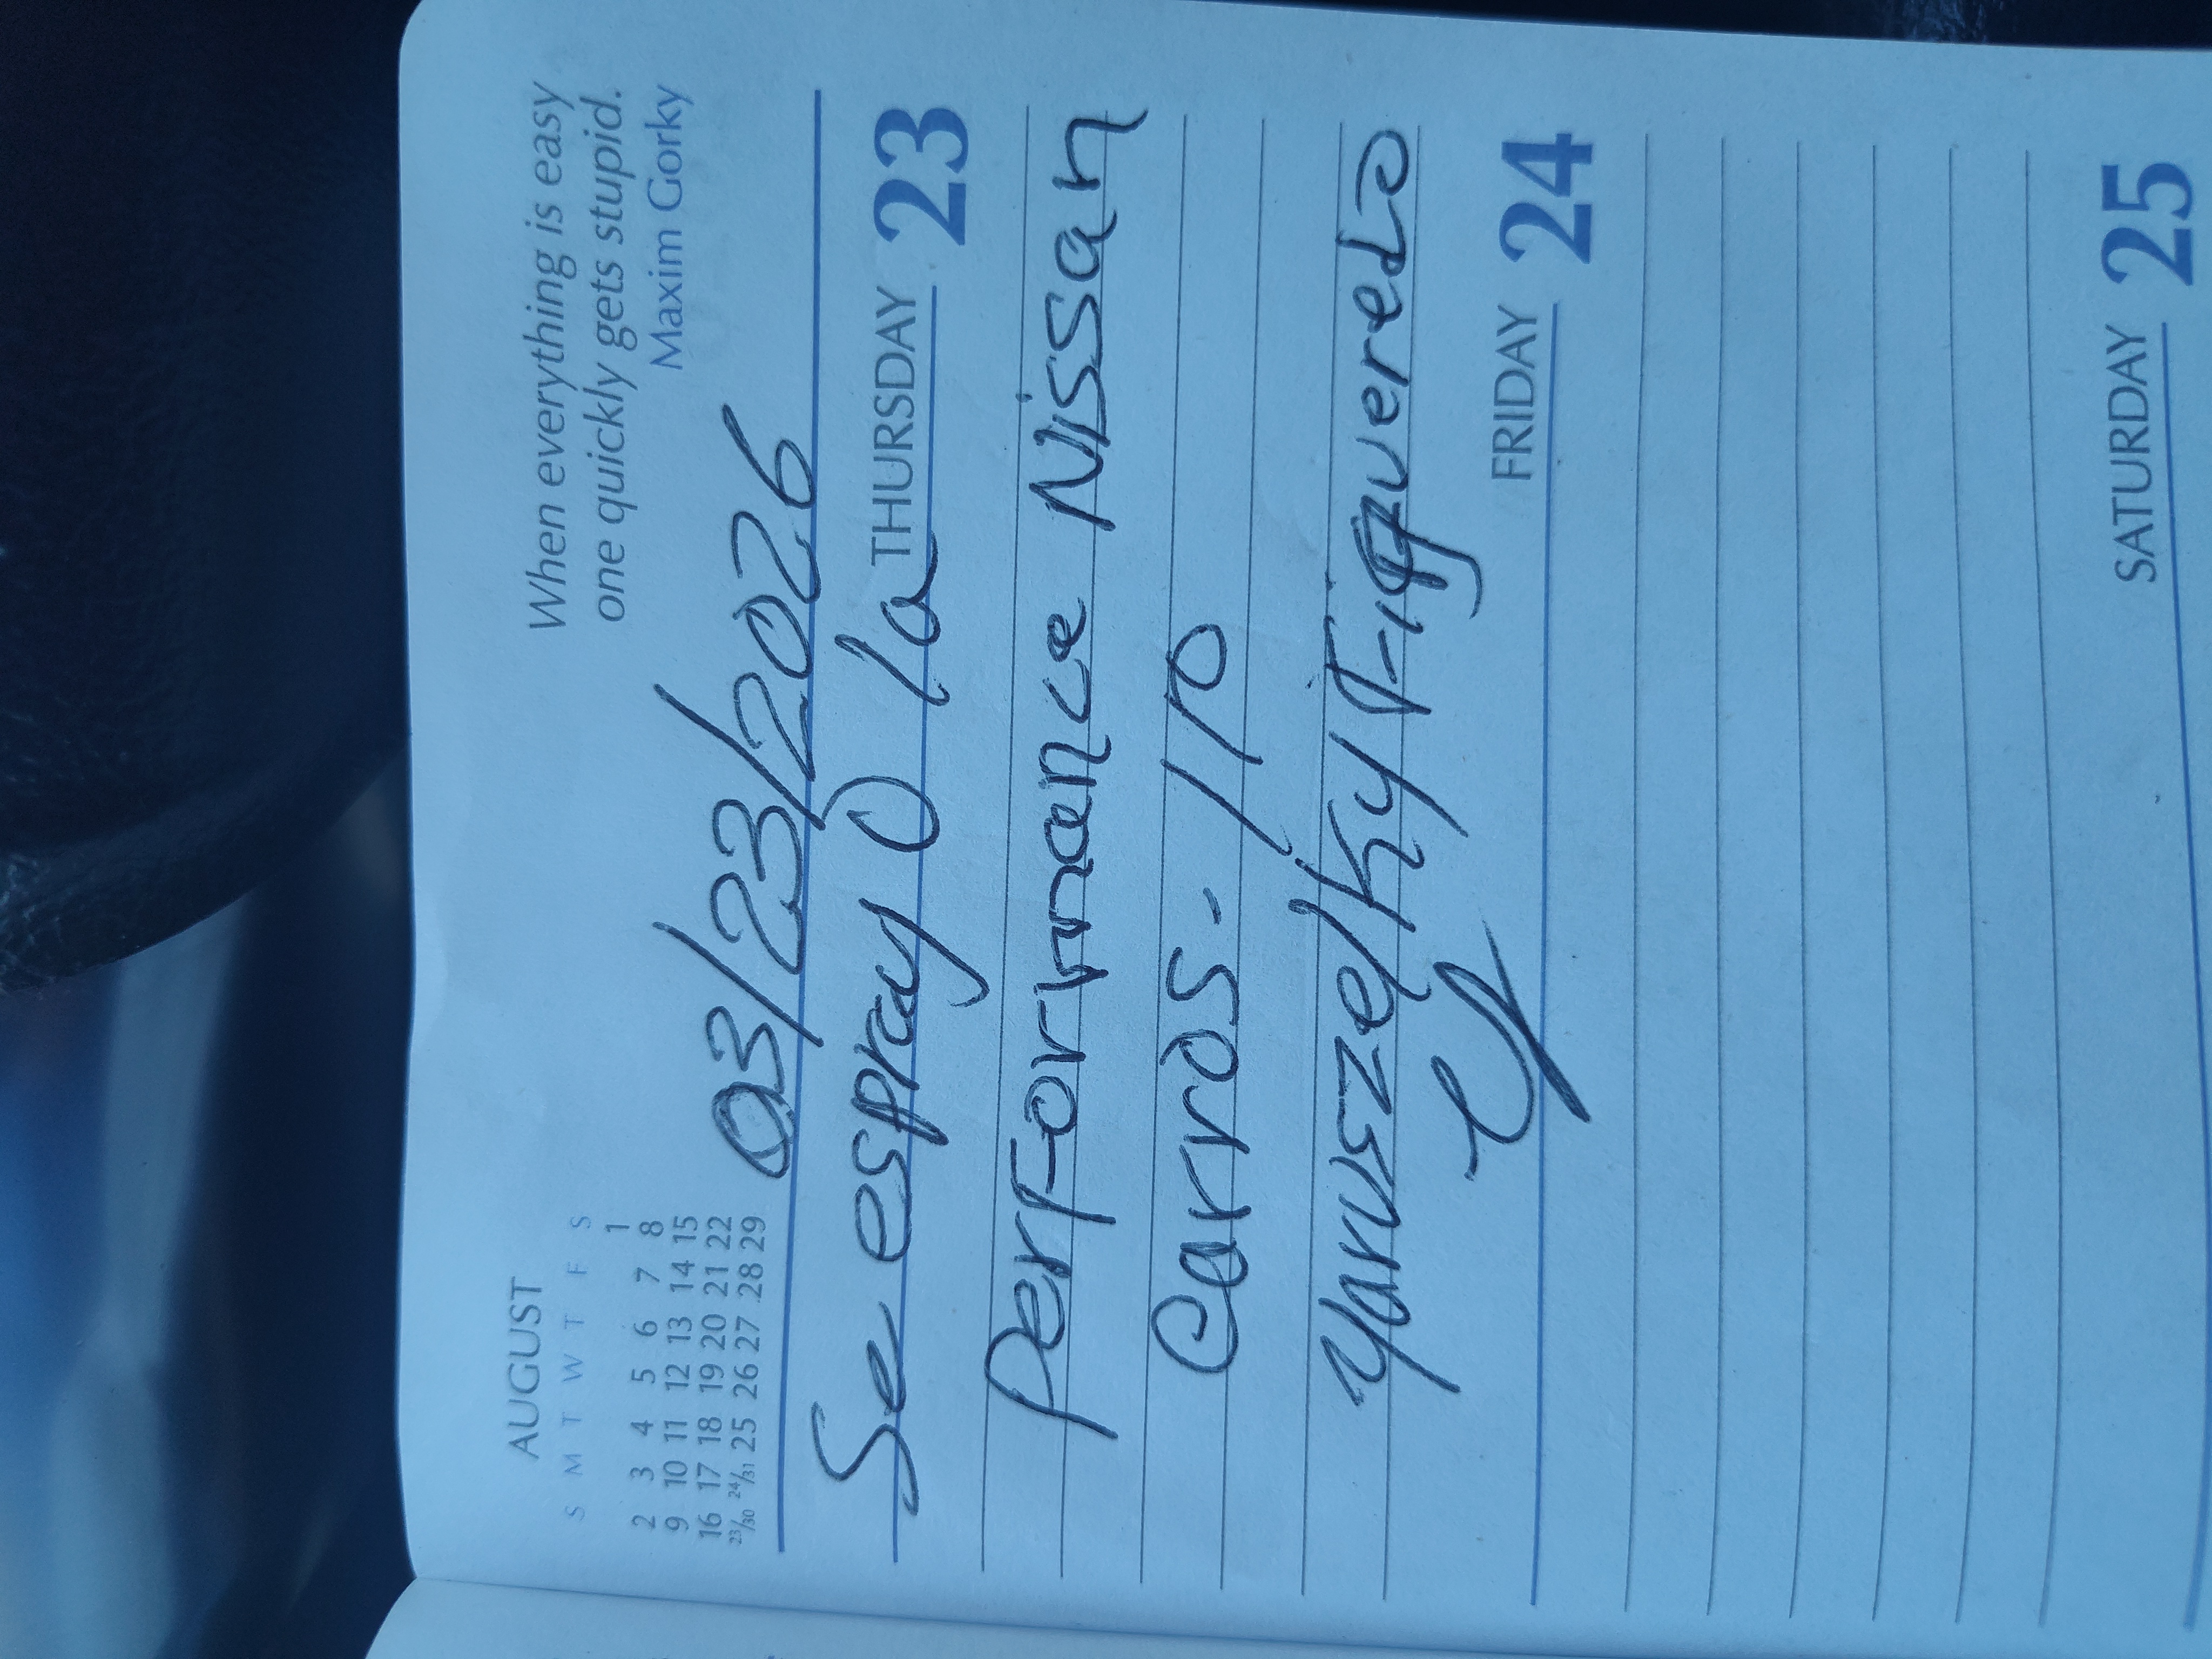 AUGUST
S M T W T F S
1
2 3 4 5 6 7 8
9 10 11 12 13 14 15
16 17 18 19 20 21 22
23/30 24/31 25 26 27 28 29
When everything is easy
one quickly gets stupid.
Maxim Gorky
03/23/2026
THURSDAY 23
Se esprayO la
Performance Nissan
Carros- 10
Yaruszelky Figueredo
FRIDAY 24
SATURDAY 25